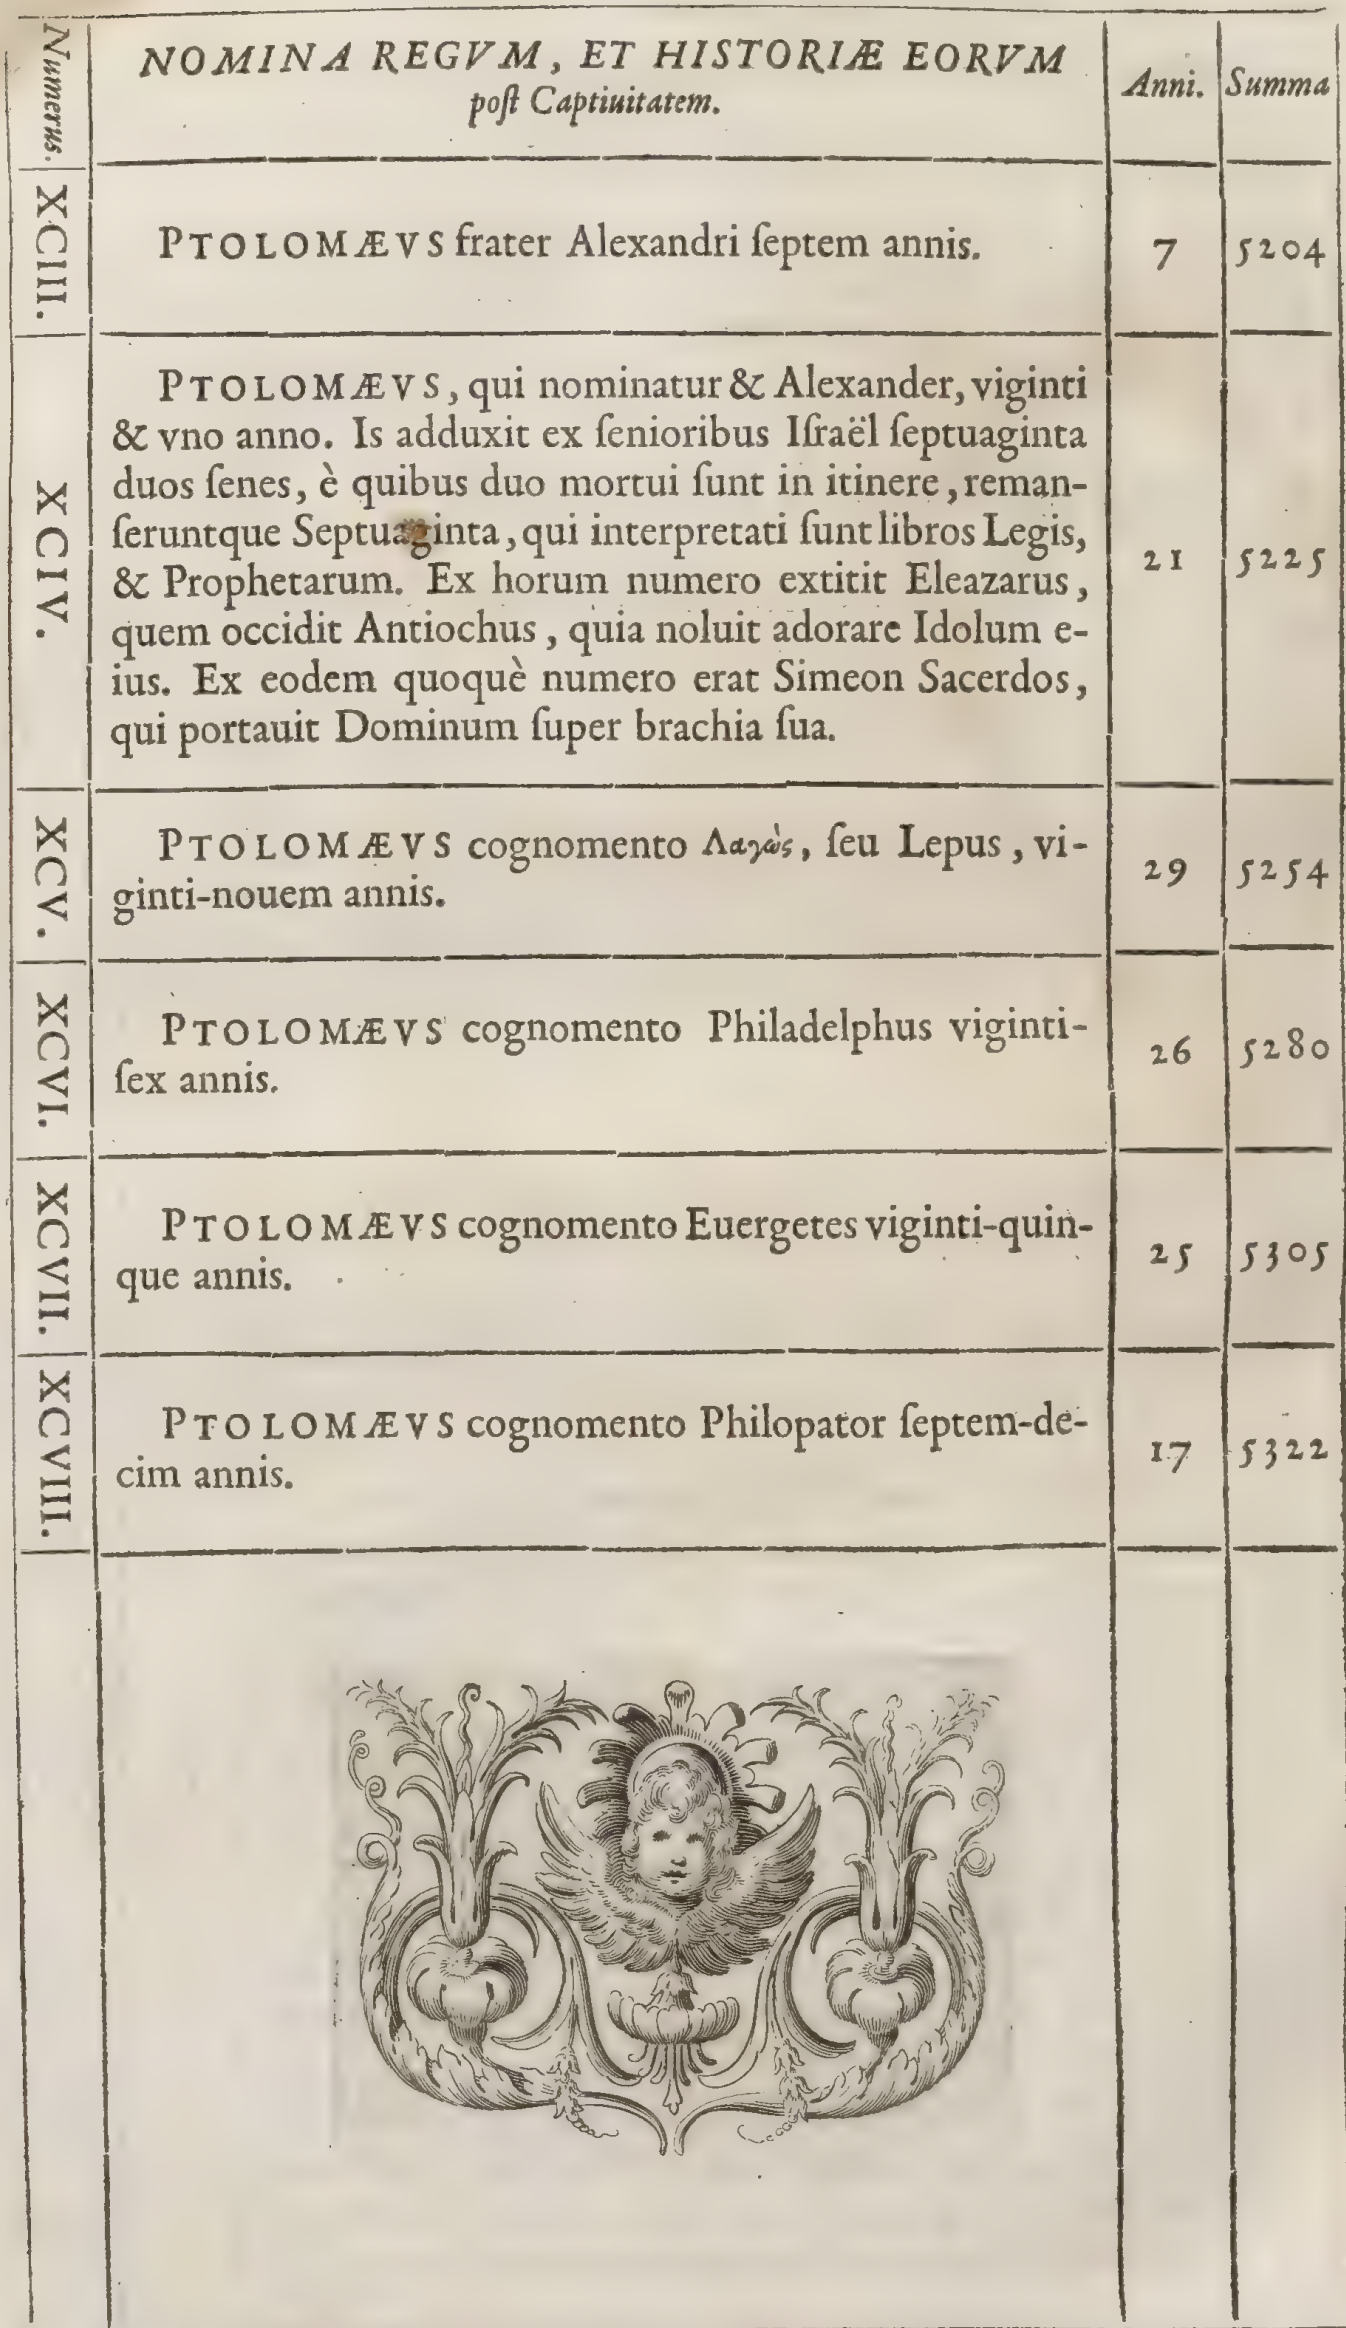 Numerus.
NOMINA REGVM, ET HISTORIÆ EORVM
poſt Captiuitatem.
Anni.
Summa
XCIII.
PTOLOMÆVS frater Alexandri ſeptem annis.
7
5204
XCIV.
PTOLOMÆVS, qui nominatur & Alexander, viginti
& vno anno. Is adduxit ex ſenioribus Iſraël ſeptuaginta
duos ſenes, è quibus duo mortui ſunt in itinere, reman-
ſeruntque Septuaginta, qui interpretati ſunt libros Legis,
& Prophetarum. Ex horum numero extitit Eleazarus,
quem occidit Antiochus, quia noluit adorare Idolum e-
ius. Ex eodem quoquè numero erat Simeon Sacerdos,
qui portauit Dominum ſuper brachia ſua.
21
5225
XCV.
PTOLOMÆVS cognomento Λαγὼς, ſeu Lepus, vi-
ginti-nouem annis.
29
5254
XCVI.
PTOLOMÆVS cognomento Philadelphus viginti-
ſex annis.
26
5280
XCVII.
PTOLOMÆVS cognomento Euergetes viginti-quin-
que annis.
25
5305
XCVIII.
PTOLOMÆVS cognomento Philopator ſeptem-de-
cim annis.
17
5322